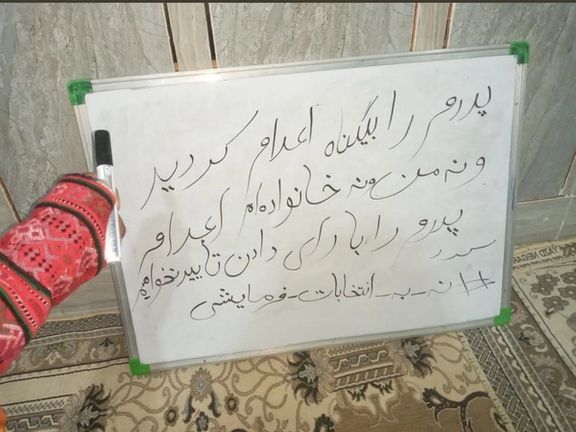 پدرم را بیگناه اعدام کردید
و نه من و نه خانواده‌ام اعدام
پدرم را با رای دادن تایید نخواهیم
کرد
#نه_به_انتخابات_فرمایشی
YAZD NEGAR